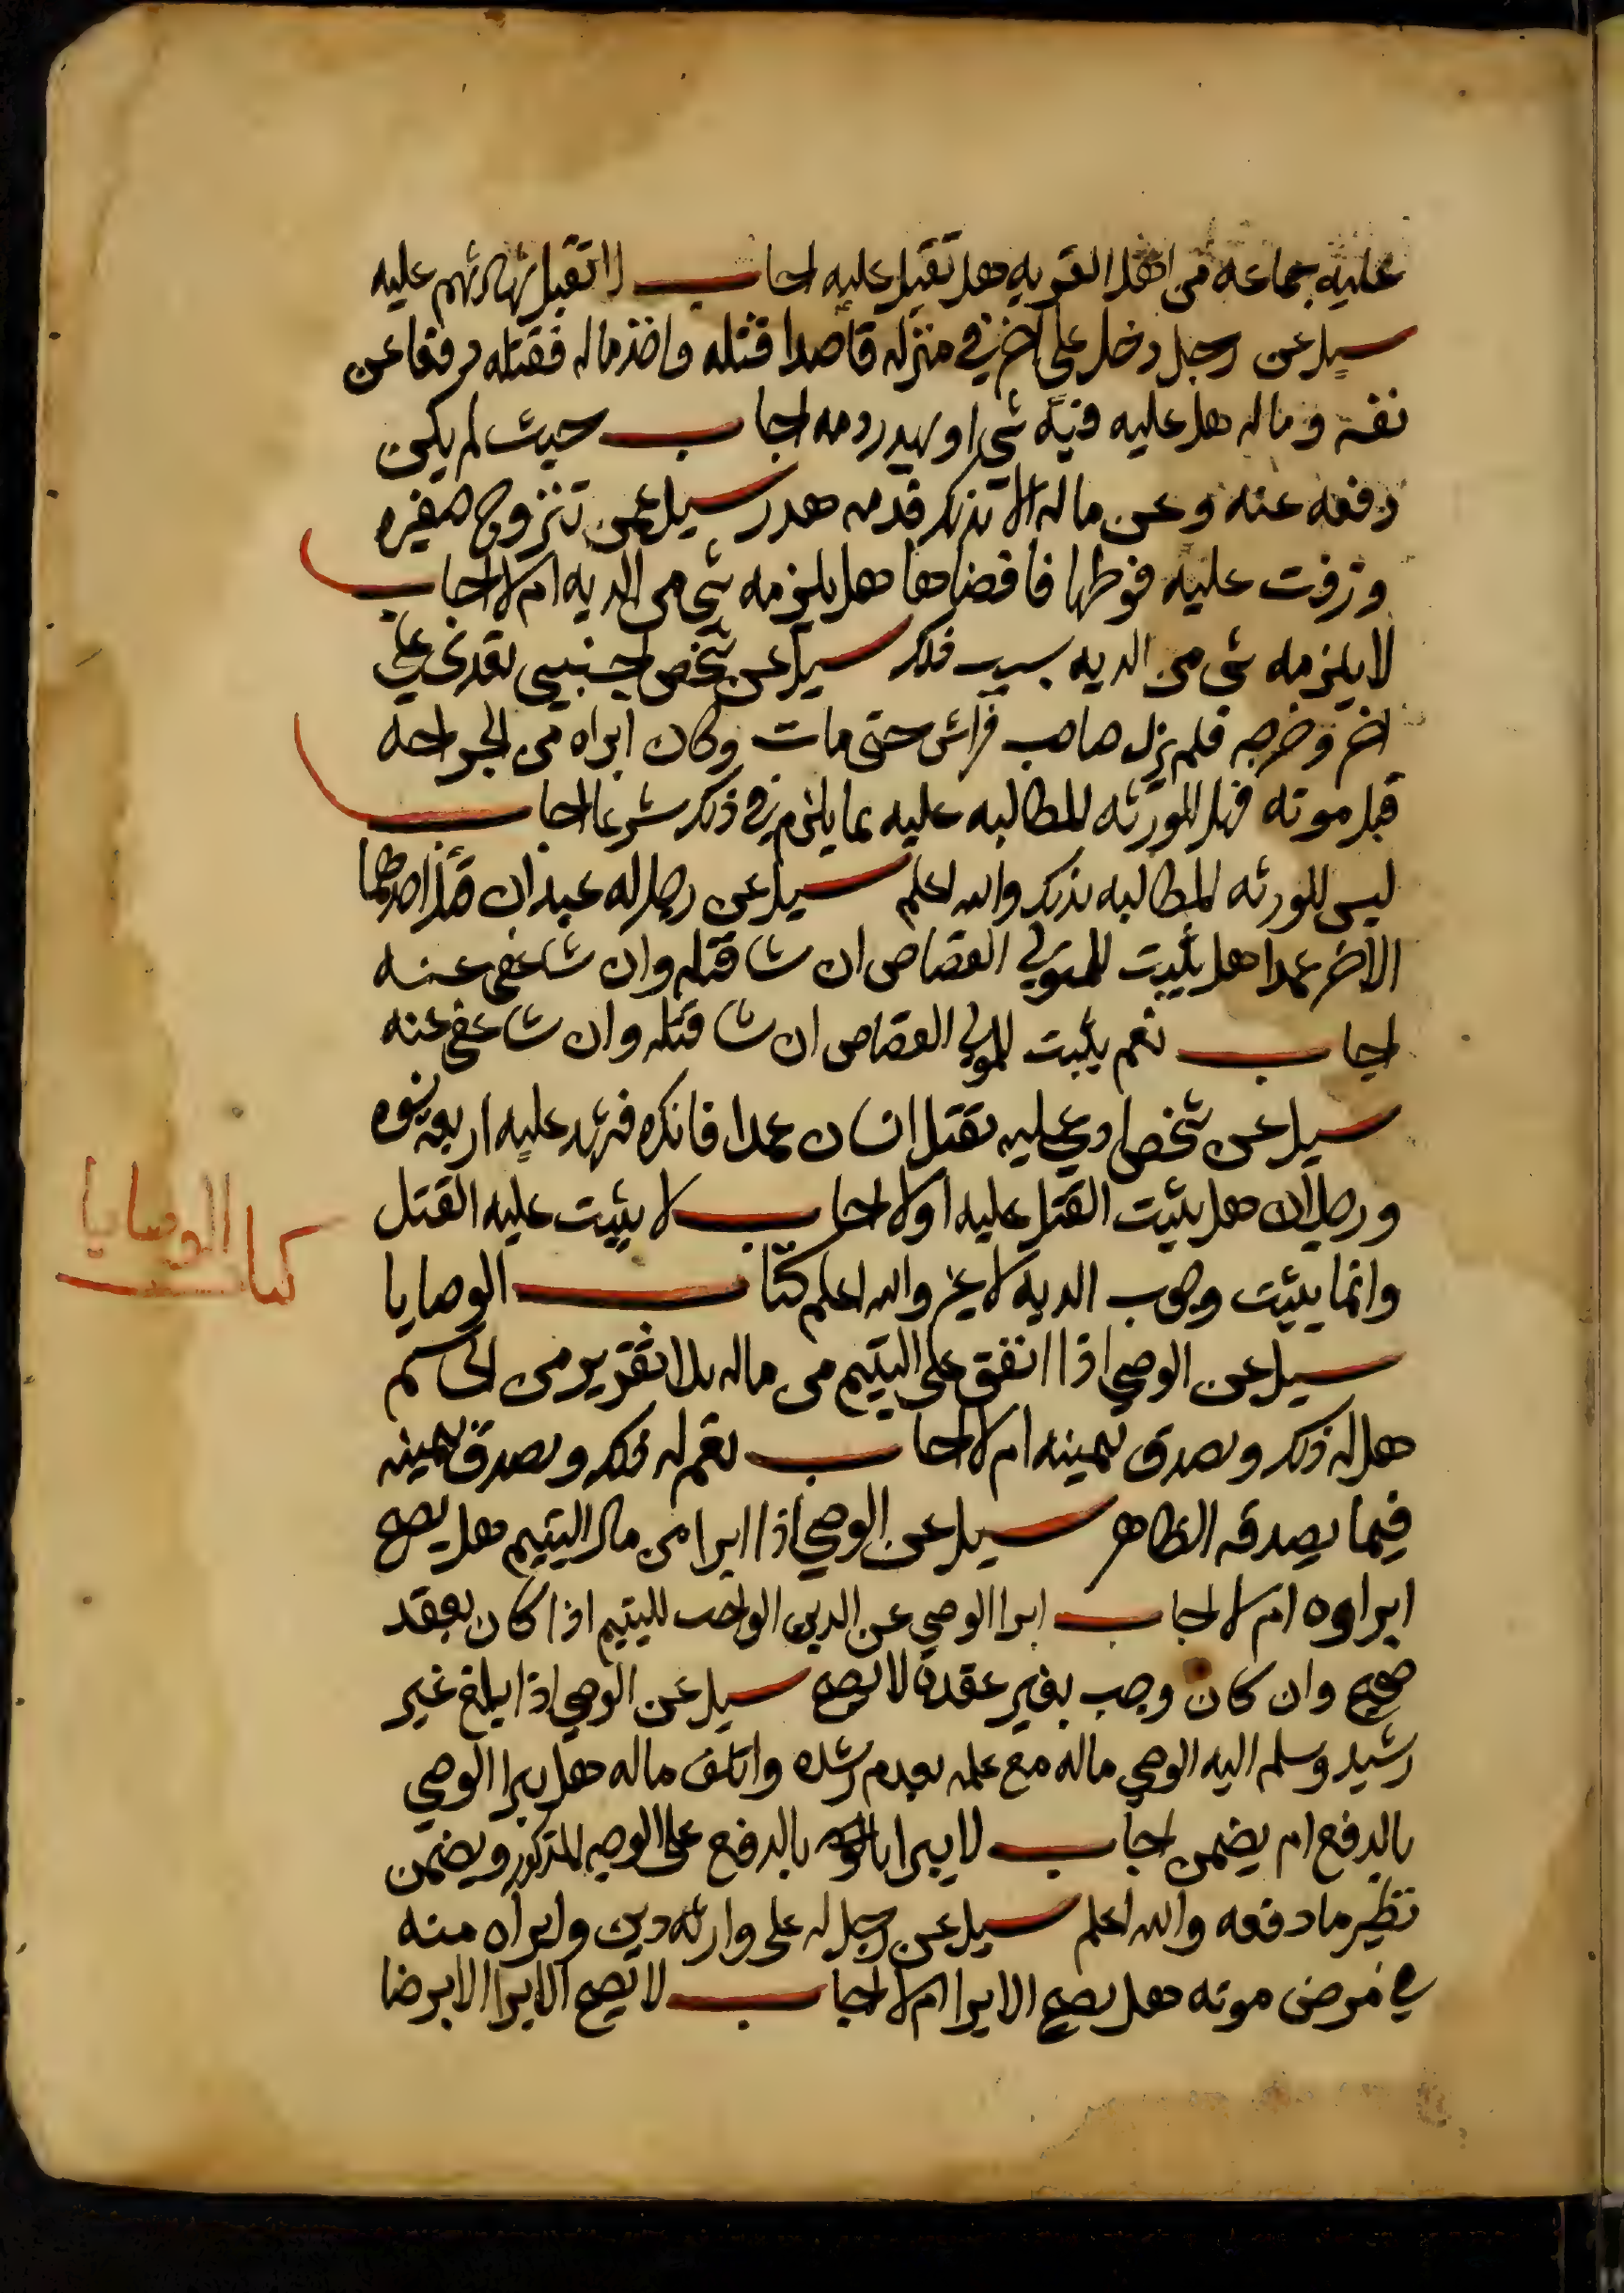 عليه جماعه من اهل القريه هل تقبل عليه اجاب لا تقبل شهادتهم عليه
سيل عن رجل دخل على اخر في منزله قاصدا قتله واخذ ماله فقتله دفعا عن
نفسه وماله هل عليه فيه شي او يهدر دمه اجاب حيث لم يكن
دفعه عنه وعن ماله الا بذلك فدمه هدر سيل عمن تزوج صغيره
وزفت عليه فوطيها فافضاها هل يلزمه شي من الديه ام لا اجاب
لا يلزمه شي من الديه بسبب ذلك سيل عن شخص اجنبي تعدى على
اخر وضربه فلم يزل صاحب فراش حتى مات وكان ابراه من الجراحه
قبل موته فهل للورثه المطالبه عليه بما يلزم في ذلك شرعا اجاب
ليس للورثه المطالبه بذلك والله اعلم سيل عن رجل له عبدان قتل احدهما
الاخر عمدا هل يثبت للمولى القصاص ان شا قتله وان شا عفى عنه
اجاب نعم يثبت للمولى القصاص ان شا قتله وان شا عفى عنه
سيل عن شخص ادعي عليه بقتل انسان عمدا فانكره فشهد عليه اربع نسوه
ورجلان هل يثبت القتل عليه اولا اجاب لا يثبت عليه القتل
وانما يثبت وجوب الديه لا غير والله اعلم كتاب الوصايا
كتاب الوصايا
سيل عن الوصي اذا انفق على اليتيم من ماله بلا تقرير من الحاكم
هل له ذلك ويصدق بيمينه ام لا اجاب نعم له ذلك ويصدق بيمينه
فيما يصدقه الظاهر سيل عن الوصي اذا ابرا من مال اليتيم هل يصح
ابراوه ام لا اجاب ابرا الوصي عن الدين الواجب لليتيم اذا كان بعقد
صحيح وان كان وجب بغير عقده لا يصح سيل عن الوصي اذا بلغ غير
رشيد وسلم اليه الوصي ماله مع علمه بعدم رشده واتلف ماله هل يبرا الوصي
بالدفع ام يضمن اجاب لا يبرا بالدفع على الوجه المذكور ويضمن
نظير ما دفعه والله اعلم سيل عن رجل له على وارثه دين وابراه منه
في مرض موته هل يصح الابرا ام لا اجاب لا يصح الابرا الا برضا